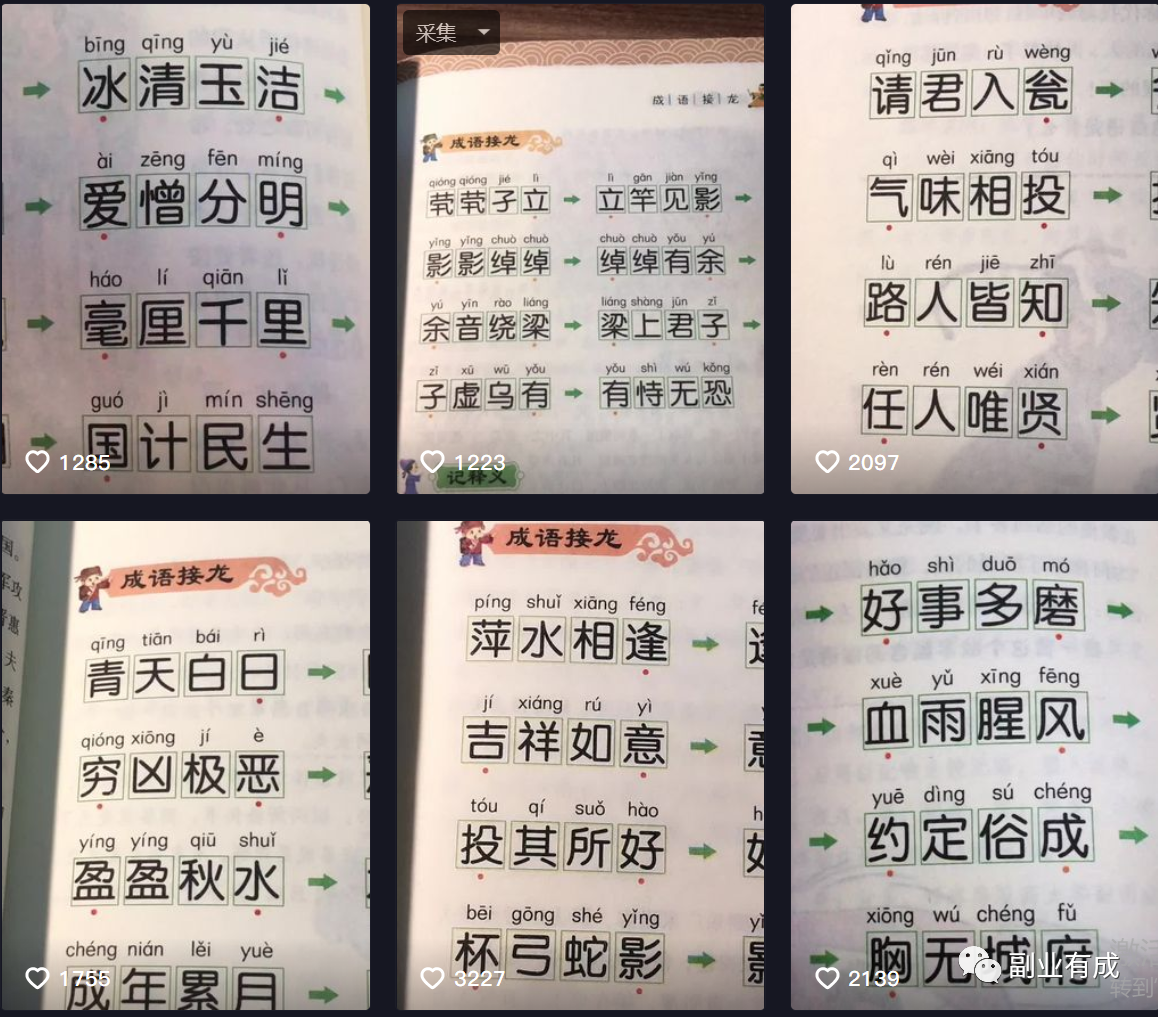 bīng qīng yù jié
冰清玉洁
ài zēng fēn míng
爱憎分明
háo lí qiān lǐ
毫厘千里
guó jì mín shēng
国计民生
1285
采集
成语接龙
成语接龙
qióng qióng jié lì lì gān jiàn yǐng
茕茕孑立 立竿见影
yǐng yǐng chuò chuò chuò chuò yǒu yú
影影绰绰 绰绰有余
yú yīn rào liáng liáng shàng jūn zǐ
余音绕梁 梁上君子
zǐ xū wū yǒu yǒu shì wú kǒng
子虚乌有 有恃无恐
1223
记释义
qǐng jūn rù wèng
请君入瓮
qì wèi xiāng tóu
气味相投
lù rén jiē zhī
路人皆知
rèn rén wéi xián
任人唯贤
2097
成语接龙
qīng tiān bái rì
青天白日
qióng xiōng jí è
穷凶极恶
yíng yíng qiū shuǐ
盈盈秋水
chéng nián lěi yuè
成年累月
1755
成语接龙
píng shuǐ xiāng féng
萍水相逢
jí xiáng rú yì
吉祥如意
tóu qí suǒ hào
投其所好
bēi gōng shé yǐng
杯弓蛇影
3227
hǎo shì duō mó
好事多磨
xuè yǔ xīng fēng
血雨腥风
yuē dìng sú chéng
约定俗成
xiōng wú chéng fǔ
胸无城府
2139
副业有成
转到